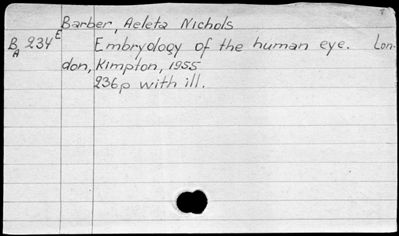 Barber, Aeleta Nichols
B 234 E Embryology of the human eye. Lon-
A don, Kimpton, 1955
236p with ill.